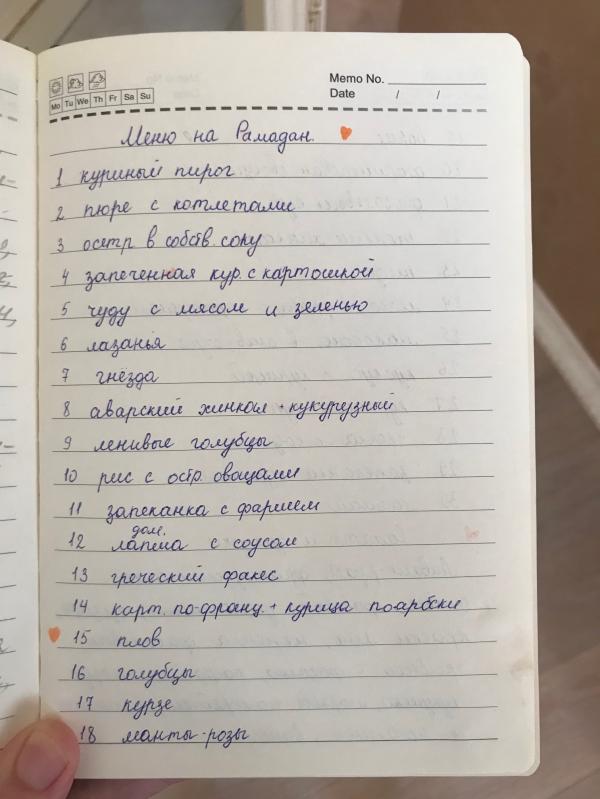 Memo No.
Mo Tu We Th Fr Sa Su
Date / /
Меню на Рамадан.
1 куриный пирог
2 пюре с котлетами
3 осетр в собств. соку
4 запеченная кур. с картошкой
5 чуду с мясом и зеленью
6 лазанья
7 гнёзда
8 аварский хинкал + кукурузный
9 ленивые голубцы
10 рис с остр. овощами
11 запеканка с фаршем
дом.
12 лапша с соусом
13 греческий факес
14 карт. по-франц. + курица поарбски
15 плов
16 голубцы
17 курзе
18 манты-розы